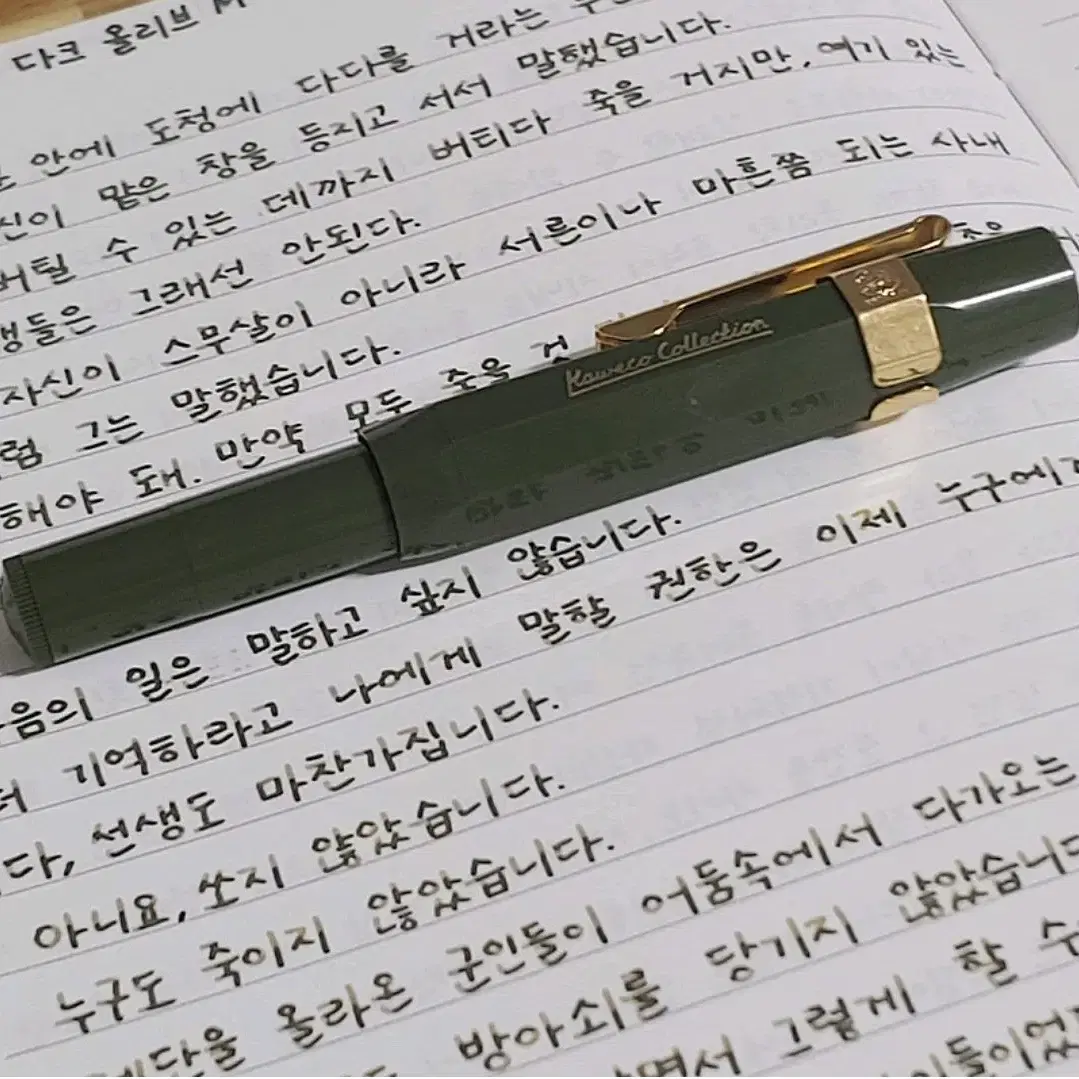 다크 올리브 M
안에 도청에 다다를 거라는
신이 맡은 창을 등지고 서서 말했습니다.
버틸 수 있는 데까지 버티다 죽을 거지만, 여기 있는
생들은 그래선 안된다.
자신이 스무살이 아니라 서른이나 마흔쯤 되는 사내
럼 그는 말했습니다.
해야 돼. 만약 모두 죽을 것
Kaweco Collection
음의 일은 말하고 싶지 않습니다.
더 기억하라고 나에게 말할 권한은 이제 누구에게
다, 선생도 마찬가집니다.
아니요, 쏘지 않았습니다.
누구도 죽이지 않았습니다.
계단을 올라온 군인들이 어둠속에서 다가오는
방아쇠를 당기지 않았습니다
그렇게 할 수
이들이었